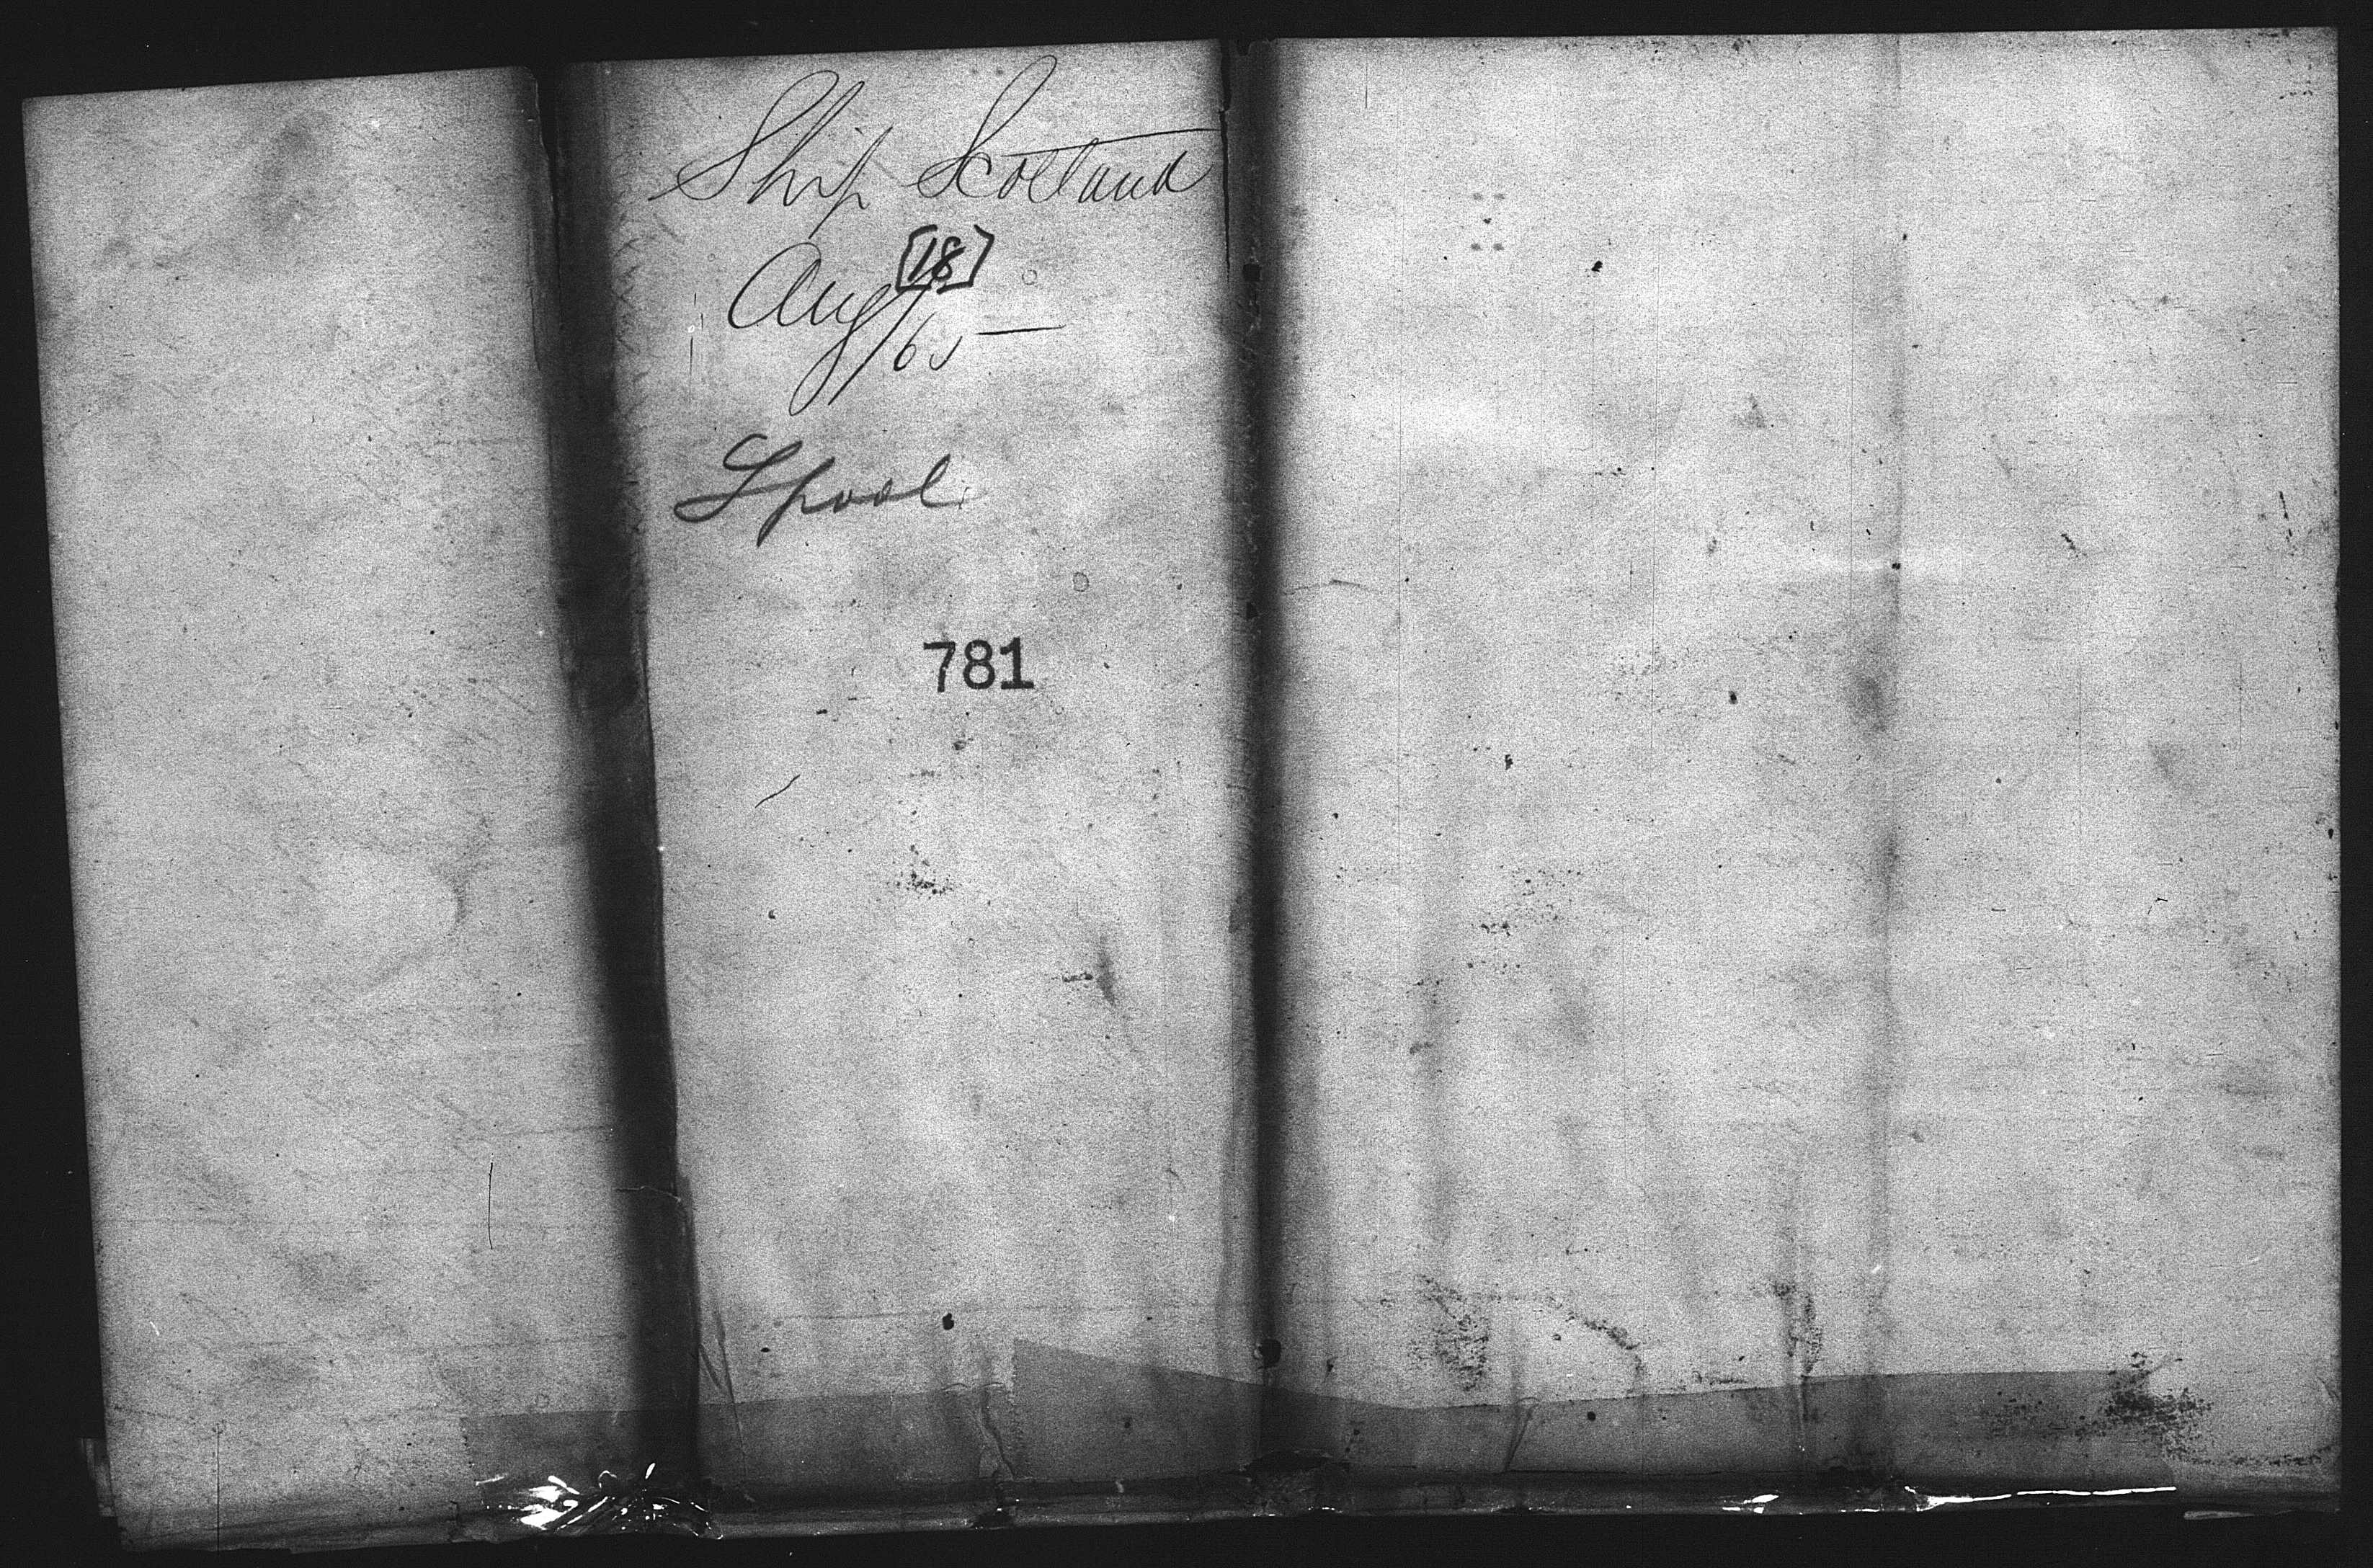 Ship Scotland
[18]
Aug/65
Lpool
781